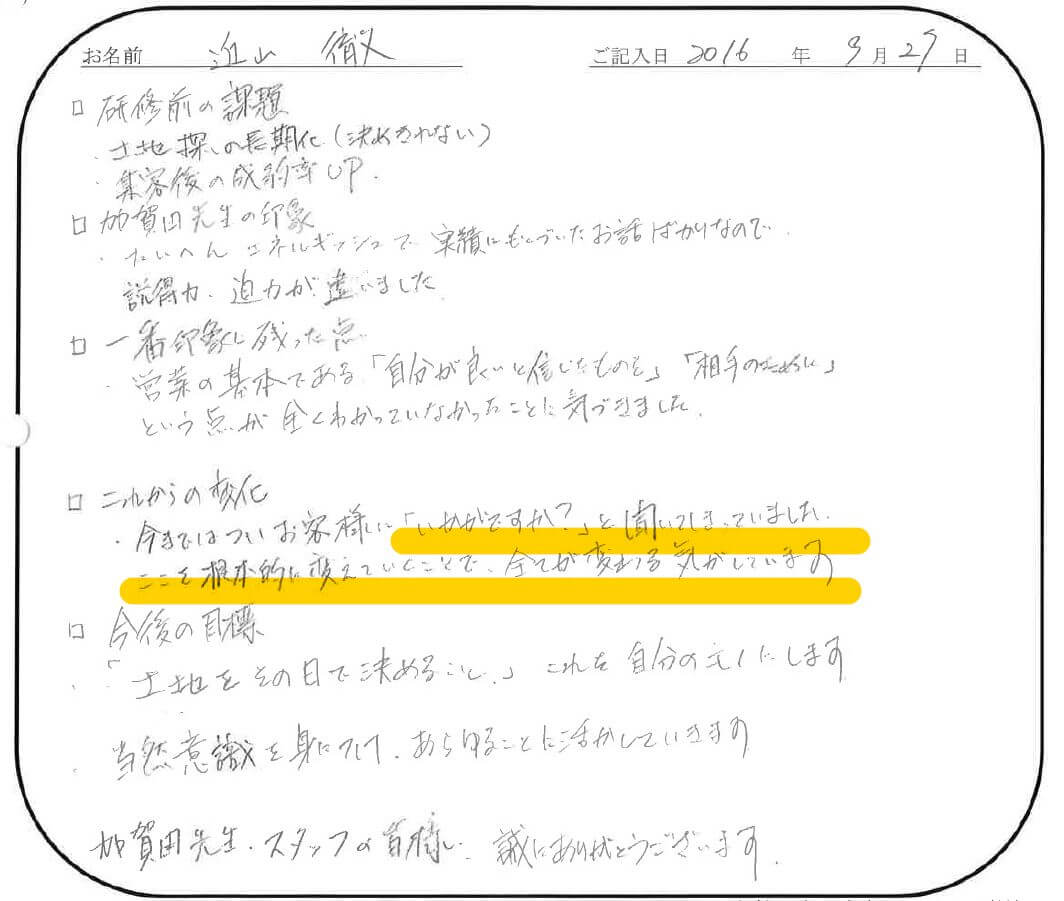 お名前 近山 徹 ご記入日 2016 年 9月 29日
□ 研修前の課題
・土地探しの長期化(決めきれない)
・集客後の成約率UP.
□ 加賀田先生の印象
・たいへんエネルギッシュで 実績にもとづいたお話ばかりなので、
説得力、迫力が違いました
□ 一番印象に残った点
・営業の基本である「自分が良いと信じたものを」「相手のために」
という点が全くわかっていなかったことに気づきました.
□ これからの変化
・今まではついお客様に「いかがですか?」と聞いてしまっていました.
ここを根本的に変えていくことで、全てが変わる気がしています
□ 今後の目標
・「土地をその日で決めること.」これを自分のものにします
・当然意識を身につけ、あらゆることに活かしていきます
加賀田先生・スタッフの皆様、誠にありがとうございます.